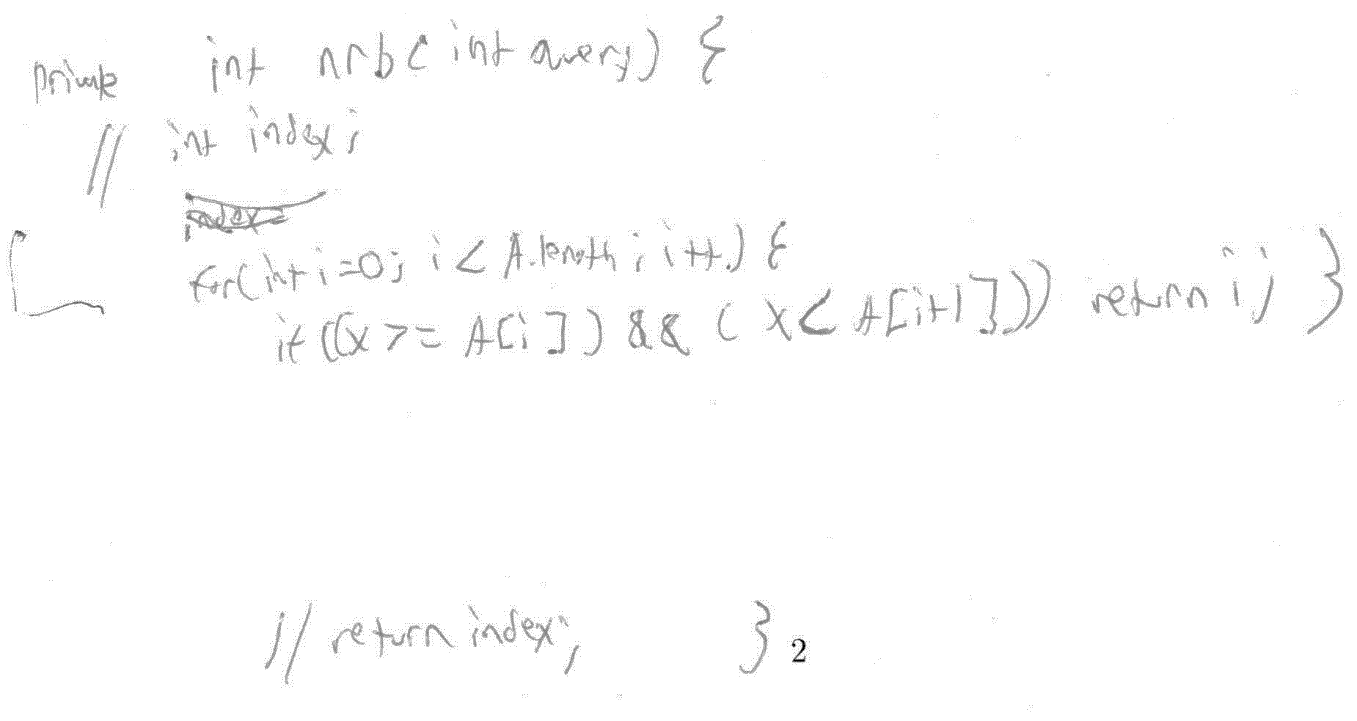 private int nrb(int query) {
// int index;
index=
for(int i=0; i < A.length; i++) {
if((x >= A[i]) && (x < A[i+1])) return i; }
// return index; }
2